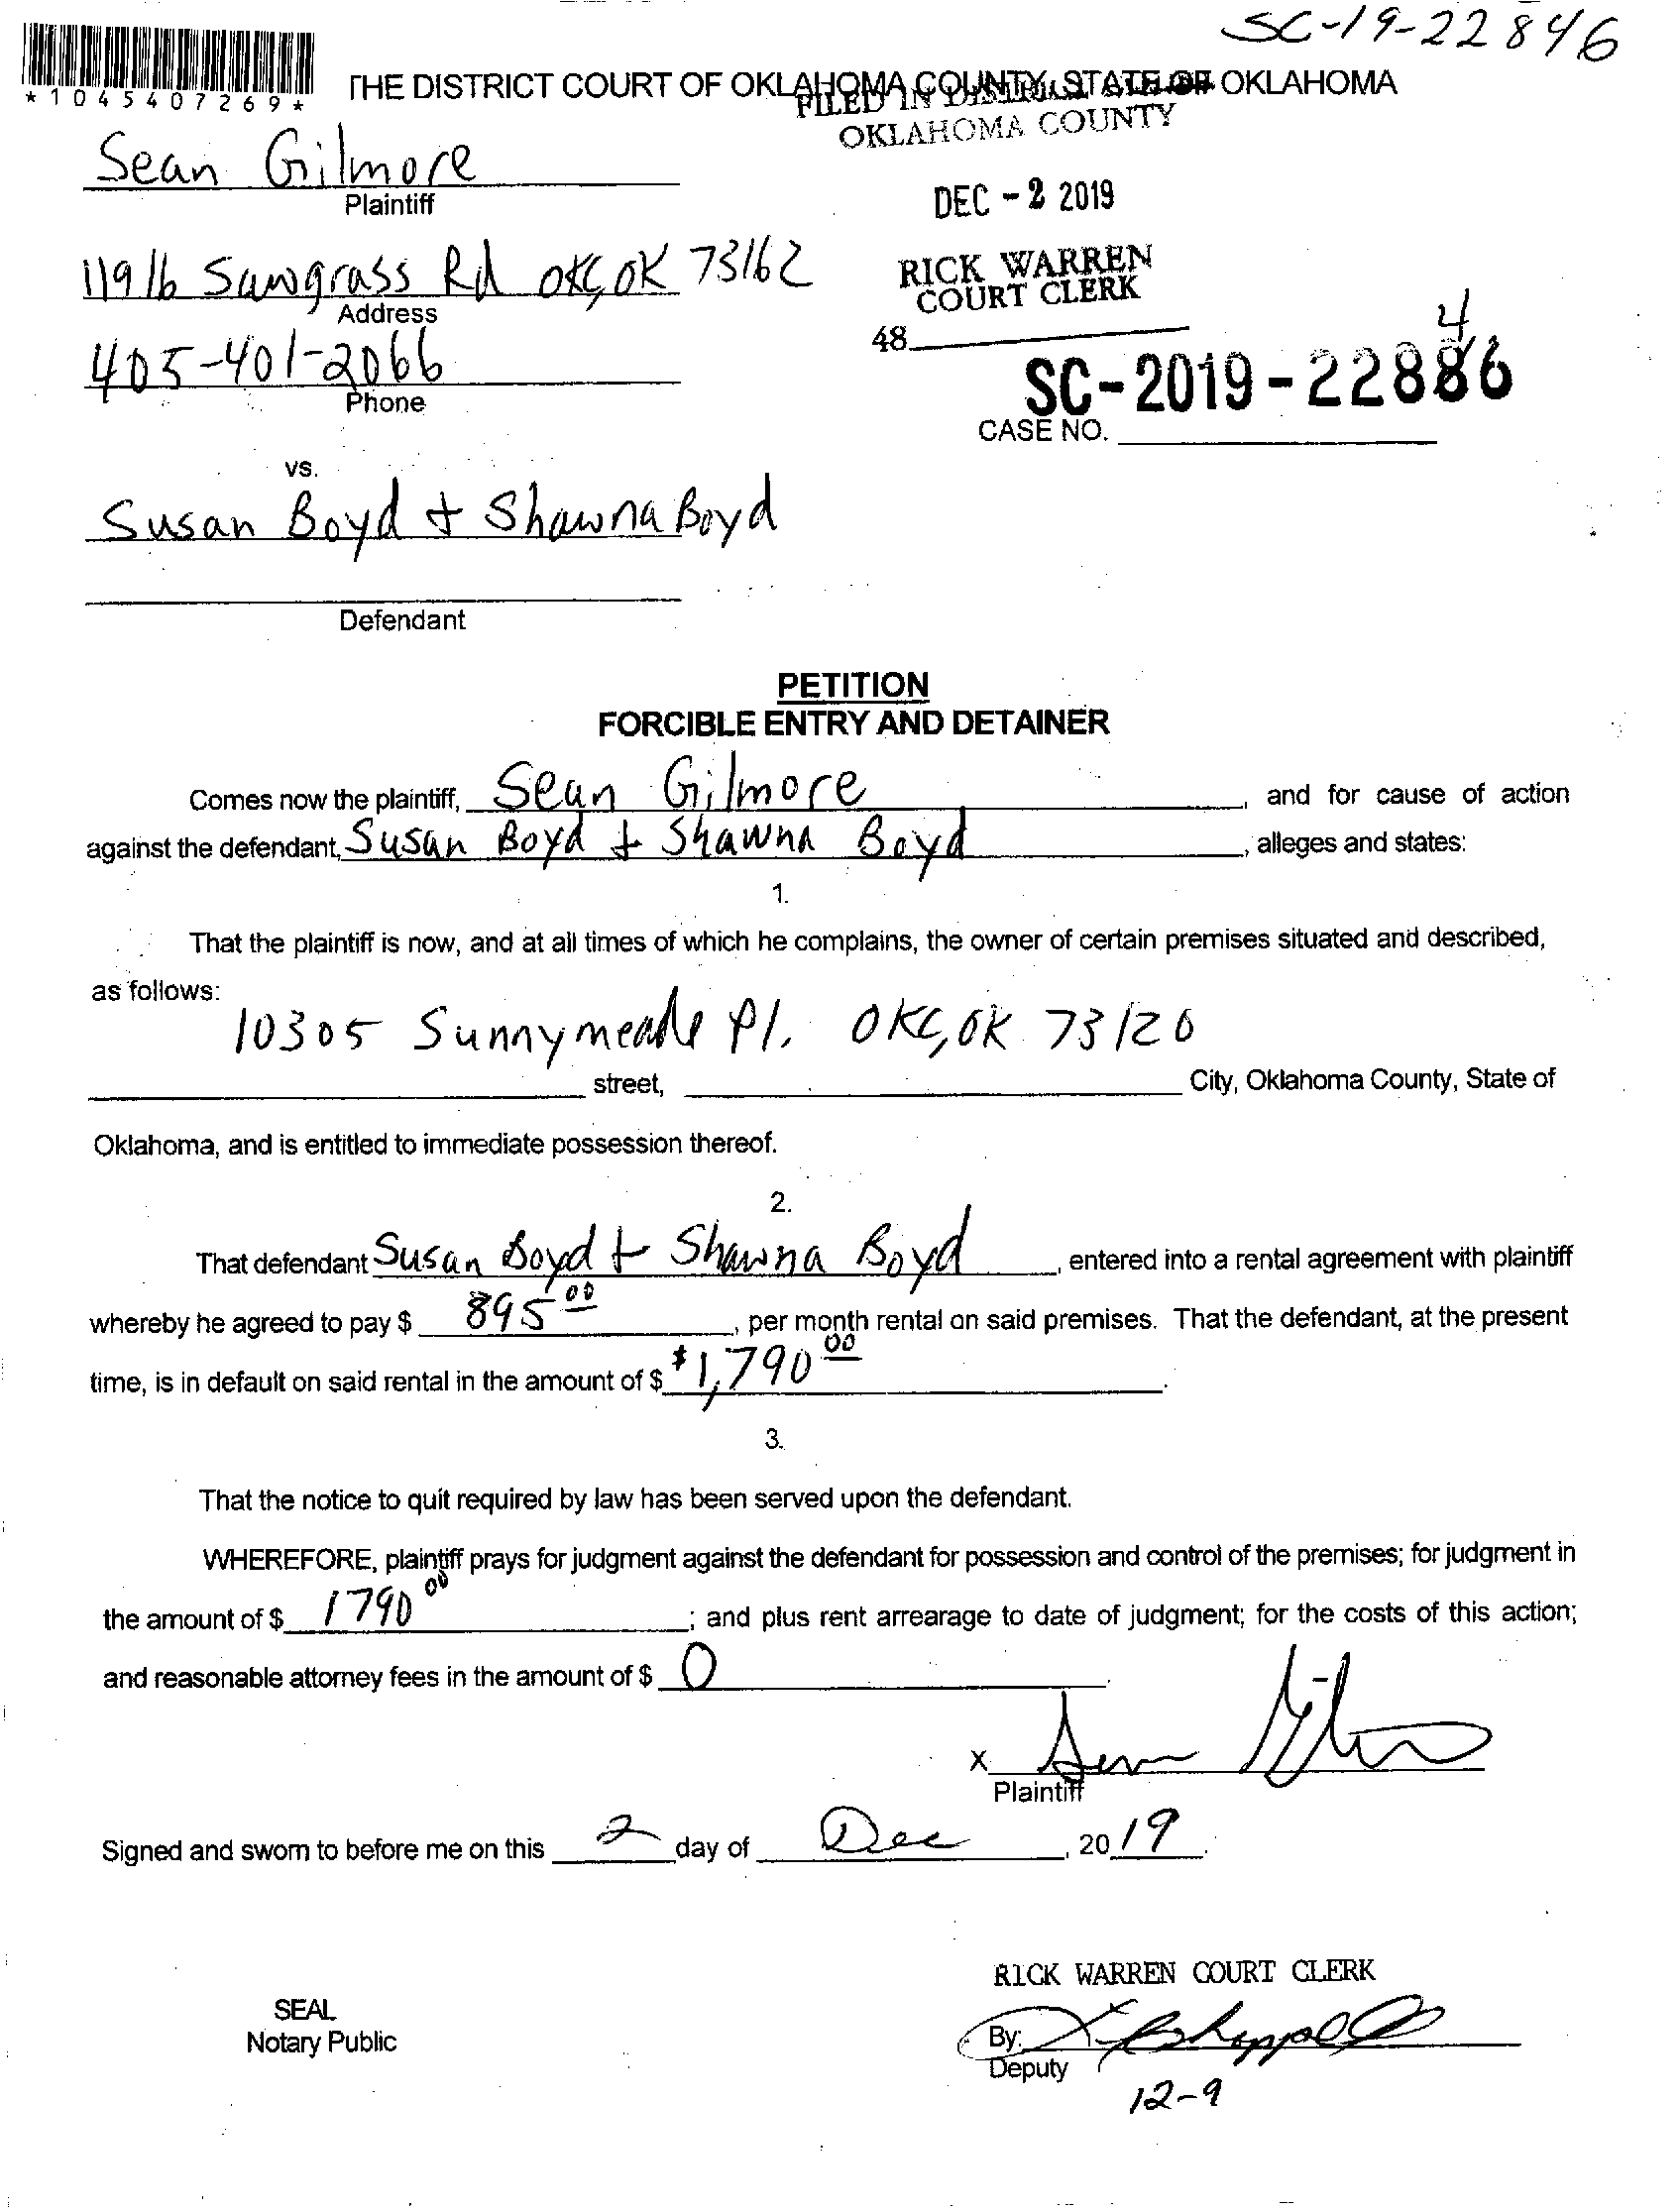 SC-19-22846
*1045407269*
THE DISTRICT COURT OF OKLAHOMA COUNTY, STATE OF OKLAHOMA
FILED IN DISTRICT COURT
OKLAHOMA COUNTY
Sean Gilmore
Plaintiff
DEC - 2 2019
11916 Sawgrass Rd OKC, OK 73162
Address
RICK WARREN
COURT CLERK
405-401-2066
Phone
48
4
SC-2019-22886
CASE NO.
vs.
Susan Boyd + Shawna Boyd
Defendant
PETITION
FORCIBLE ENTRY AND DETAINER
Comes now the plaintiff, Sean Gilmore, and for cause of action
against the defendant, Susan Boyd + Shawna Boyd, alleges and states:
1.
That the plaintiff is now, and at all times of which he complains, the owner of certain premises situated and described,
as follows:
10305 Sunnymeade Pl. OKC, OK 73120
street, City, Oklahoma County, State of
Oklahoma, and is entitled to immediate possession thereof.
2.
That defendant Susan Boyd + Shawna Boyd, entered into a rental agreement with plaintiff
whereby he agreed to pay $ 895 00, per month rental on said premises. That the defendant, at the present
time, is in default on said rental in the amount of $ $1,790 00.
3.
That the notice to quit required by law has been served upon the defendant.
WHEREFORE, plaintiff prays for judgment against the defendant for possession and control of the premises; for judgment in
the amount of $ 1790 00; and plus rent arrearage to date of judgment; for the costs of this action;
and reasonable attorney fees in the amount of $ 0.
X
Plaintiff
Signed and sworn to before me on this 2 day of Dec, 2019.
RICK WARREN COURT CLERK
SEAL
Notary Public
By:
Deputy
12-9